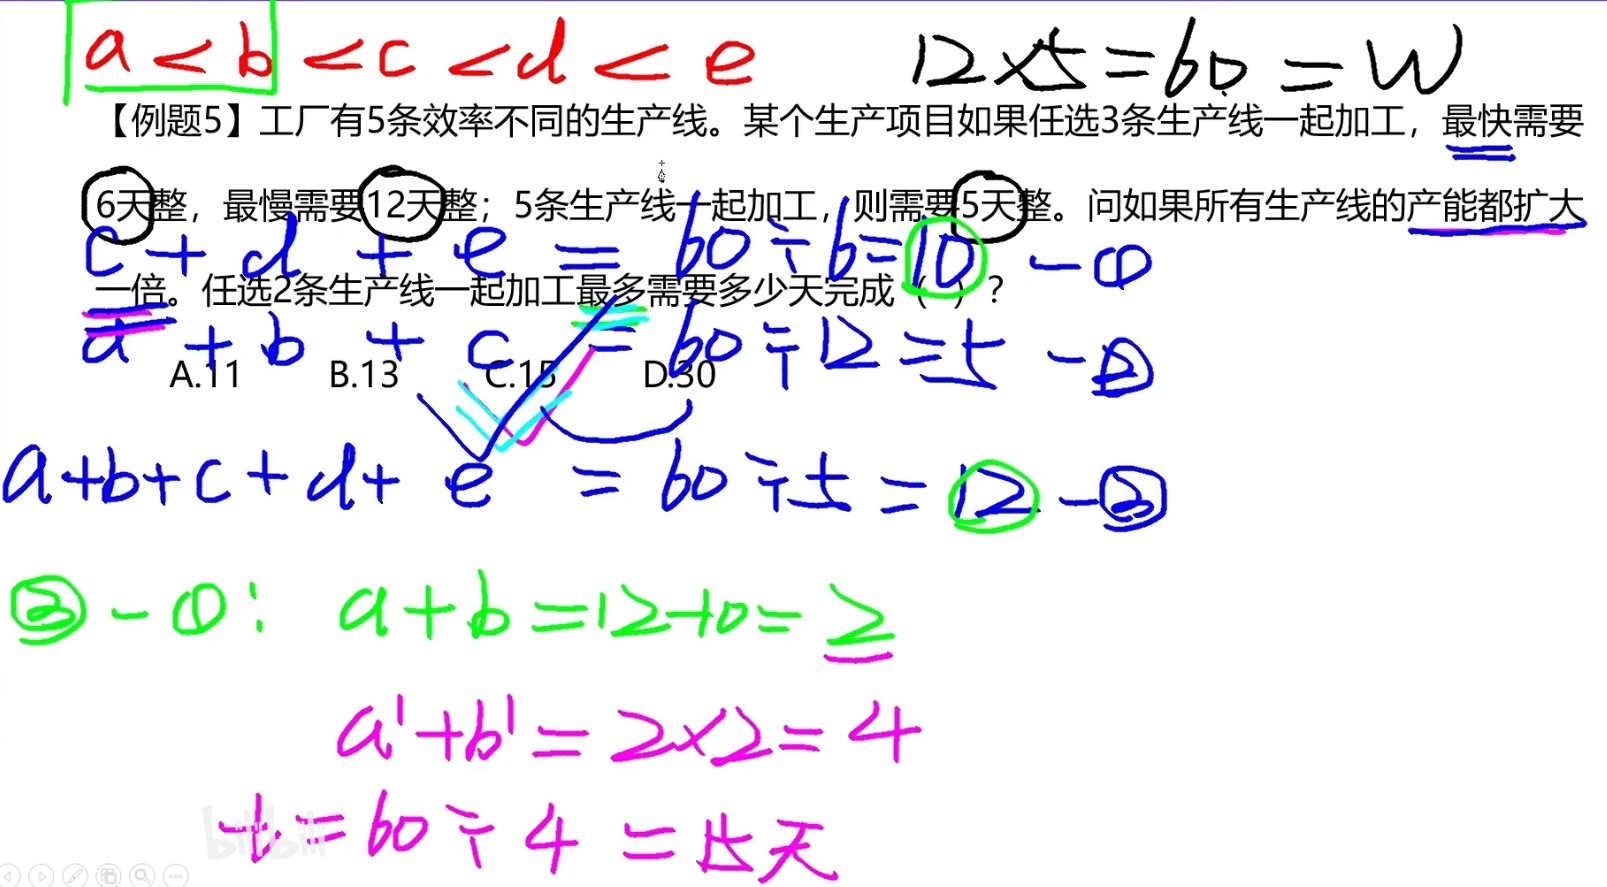 a < b < c < d < e
12×5=60=W
【例题5】工厂有5条效率不同的生产线。某个生产项目如果任选3条生产线一起加工，最快需要
6天整，最慢需要12天整；5条生产线一起加工，则需要5天整。问如果所有生产线的产能都扩大
c + d + e = 60÷6=10 -①
一倍。任选2条生产线一起加工最多需要多少天完成（ ）？
a + b + c = 60÷12=5 -②
A.11 B.13 C.15 D.30
a+b+c+d+e = 60÷5=12 -③
③-①: a+b=12-10=2
a'+b'=2×2=4
t=60÷4=15天
bilibili